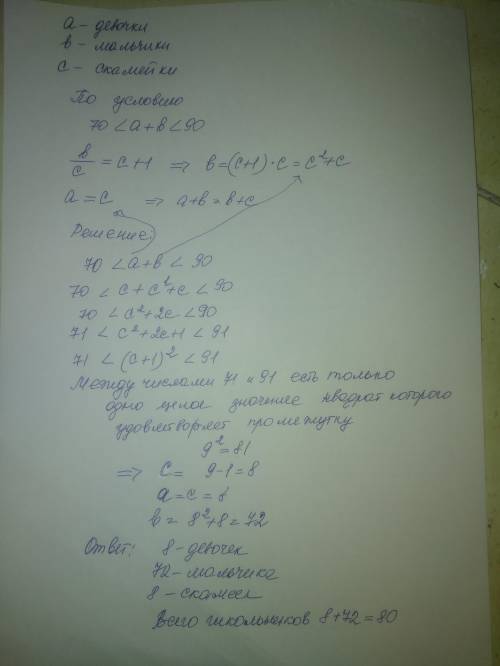 a - девочки
в - мальчики
с - скамейки
По условию
70 < a+в < 90
в/с = с+1 => в=(с+1)·с = с²+с
a = с => a+в = в+с
Решение:
70 < a+в < 90
70 < с + с²+с < 90
70 < с²+2с < 90
71 < с²+2с+1 < 91
71 < (с+1)² < 91
Между числами 71 и 91 есть только
одно целое значение квадрат которого
удовлетворяет промежутку
9² = 81
=> с = 9-1 = 8
a = с = 8
в = 8²+8 = 72
Ответ: 8 - девочек
72 - мальчика
8 - скамеек
Всего школьников 8+72 = 80